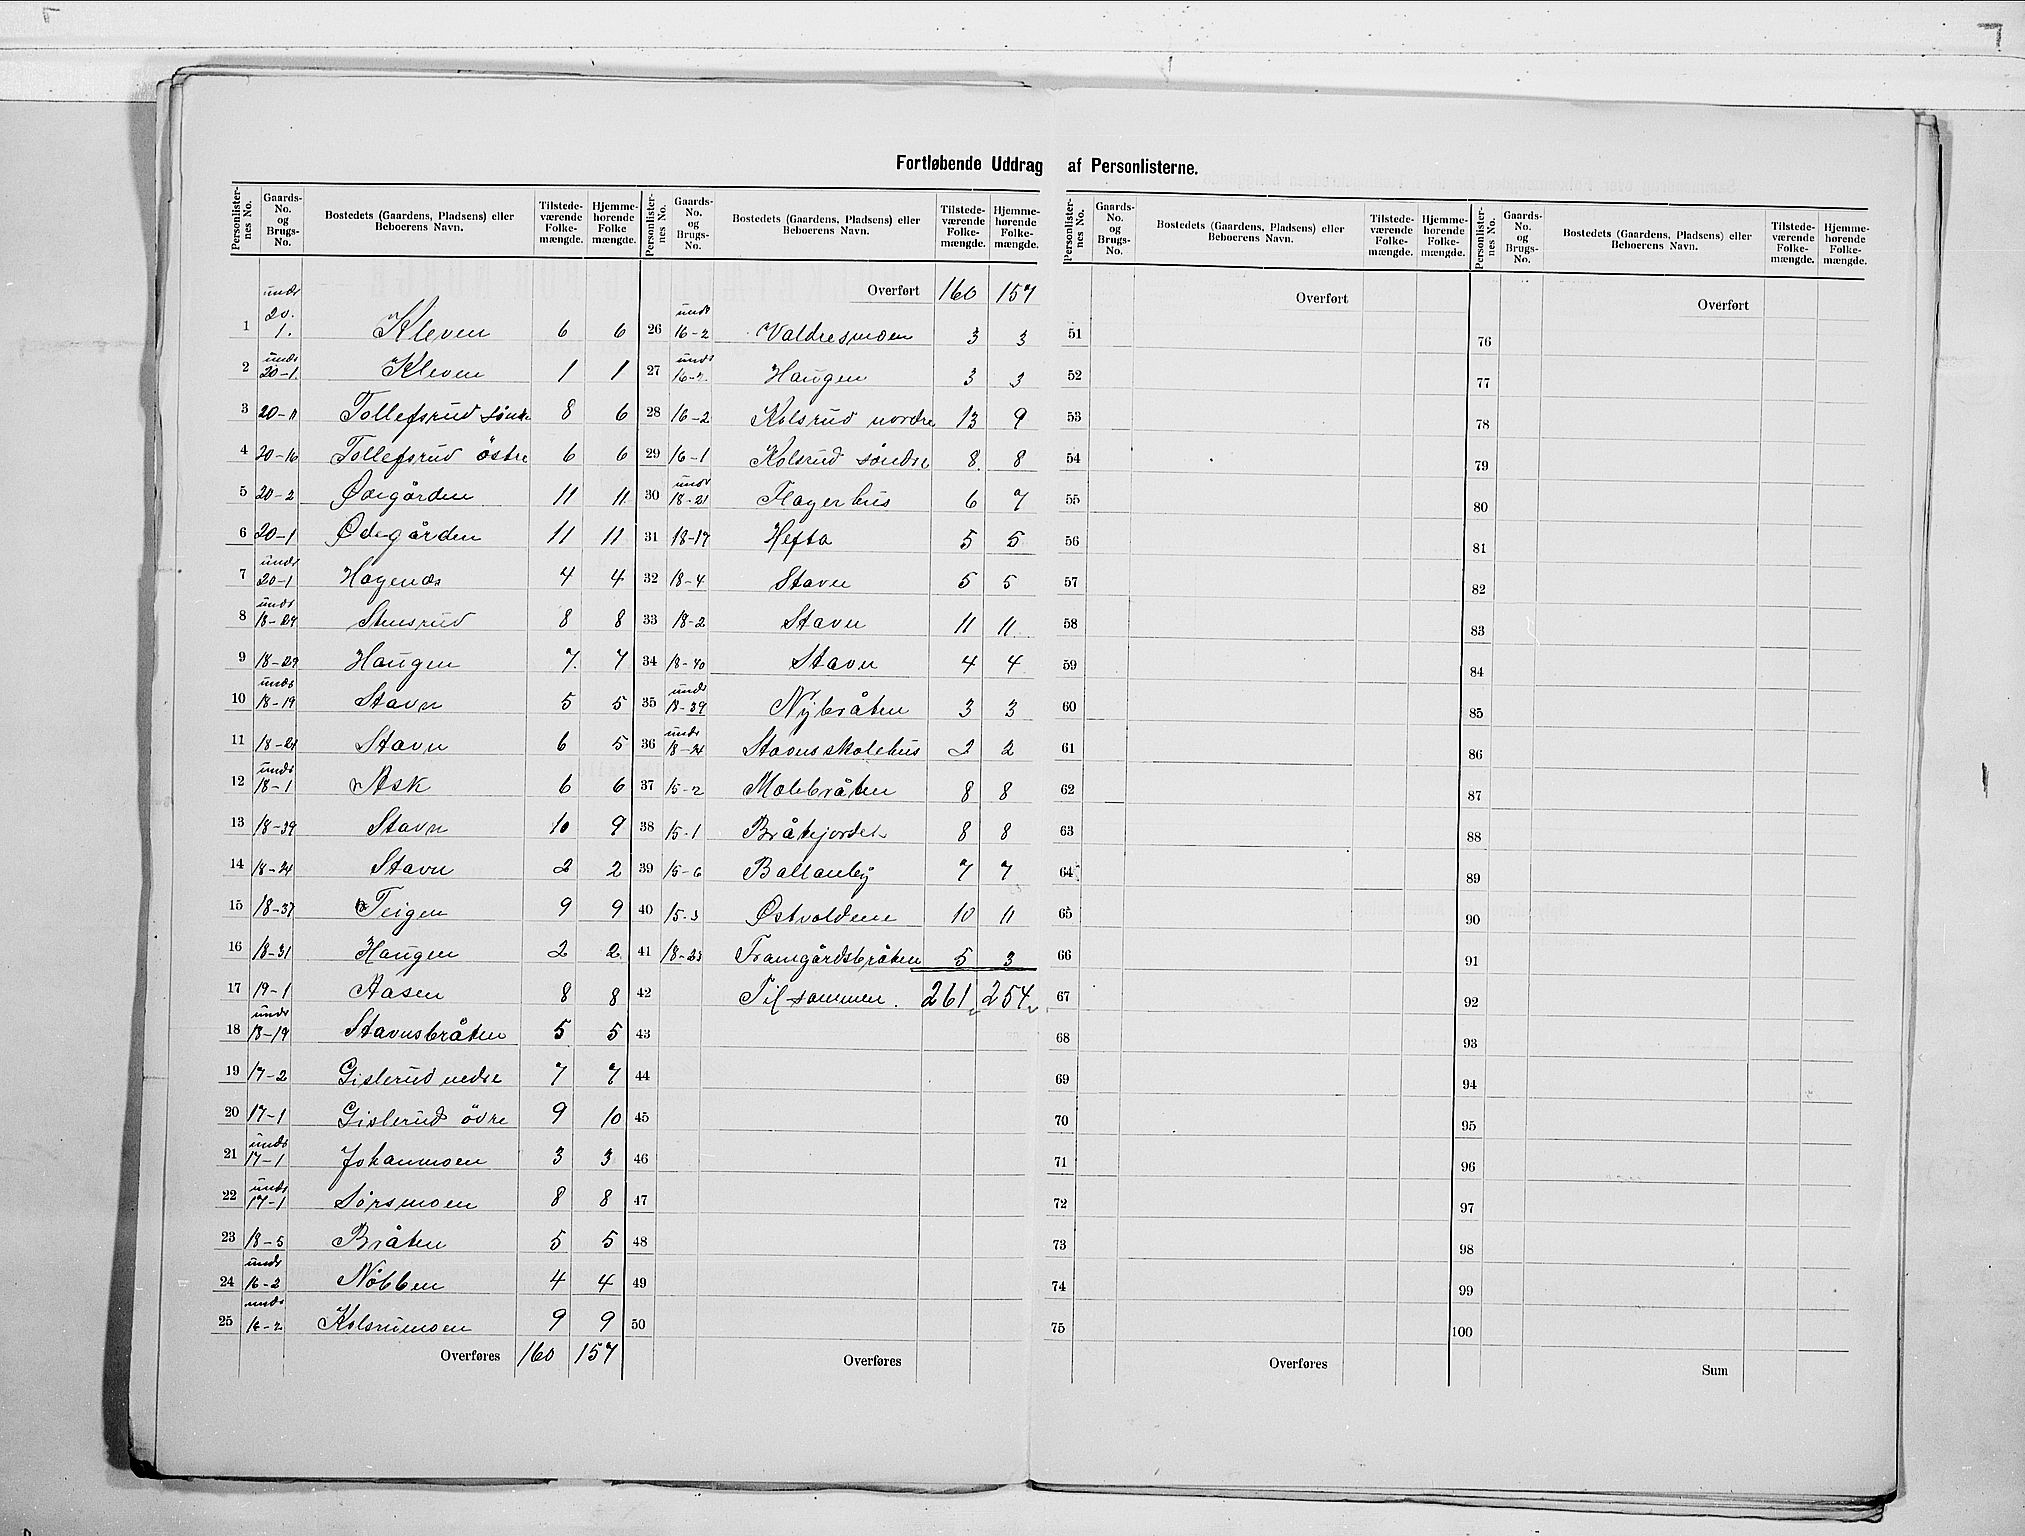 Fortløbende Uddrag af Personlisterne.
Personlister-nes No. Gaards-No. og Brugs-No. Bostedets (Gaardens, Pladsens) eller Beboerens Navn. Tilstede-værende Folke-mængde. Hjemme-hørende Folke mængde.
1 undr 20. 1. Kleven 6 6
2 undr 20-1. Kleven 1 1
3 20-11 Tollefsrud sönre 8 6
4 20-16 Tollefsrud östre 6 6
5 20-2 Ødegården 11 11
6 20-1 Ødegården 11 11
7 undr 20-1 Hagenæs 4 4
8 undr 18-29 Stensrud 8 8
9 18-29 Haugen 7. 7
10 undr 18-19 Stavn 5 5
11 18-21 Stavn 6 5
12 undr 18-1 Ask 6 6
13 18-39 Stavn 10 9
14 18-24 Stavn 2 2
15 18-37 Teigen 9 9
16 18-31 Haugen 2 2
17 19-1 Aasen 8 8
18 undr 18-19 Stavnsbråten 5 5
19 17-2 Gislerud nedre 7 7
20 17-1 Gislerud övre 9 10
21 undr 17-1 Johanmoen 3 3
22 undr 17-1 Sörsmoen 8 8
23 18-5 Bråten 5 5
24 undr 16-2 Nöbben 4 4
25 undr 16-2 Kolsrumoen 9 9
Overføres 160 157
Personlister-nes No. Gaards-No. og Brugs-No. Bostedets (Gaardens, Pladsens) eller Beboerens Navn. Tilstede-værende Folke-mængde. Hjemme-hørende Folke-mængde.
Overført 160 157
26 undr 16-2 Valdresmoen 3 3
27 undr 16-2. Haugen 3 3
28 16-2 Kolsrud nordre 13 9
29 16-1 Kolsrud söndre 8 8
30 undr 18-21 Flagerhus 6 7
31 18-17 Hefta 5 5
32 18-4 Stavn 5 5
33 18-2 Stavn 11 11.
34 18-40 Stavn 4 4
35 undr 18-39 Nybråten 3 3
36 undr 18-24 Stavnsskolehus 2 2
37 15-2 Molebråten 8 8
38 15-1 Bråtejordet 8 8
39 15-6 Ballanby 7 7
40 15-3 Østvoldene 10 11
41 18-23 Framgårdsbråten 5 3
42 Tilsammen. 261 254
43
44
45
46
47
48
49
50
Overføres
Personlister-nes No. Gaards-No. og Brugs-No. Bostedets (Gaardens, Pladsens) eller Beboerens Navn. Tilstede-værende Folke-mængde. Hjemme-hørende Folke-mængde.
Overført
51
52
53
54
55
56
57
58
59
60
61
62
63
64
65
66
67
68
69
70
71
72
73
74
75
Overføres
Personlister-nes No. Gaards-No. og Brugs-No. Bostedets (Gaardens, Pladsens) eller Beboerens Navn. Tilstede-værende Folke-mængde. Hjemme-hørende Folke-mængde.
Overført
76
77
78
79
80
81
82
83
84
85
86
87
88
89
90
91
92
93
94
95
96
97
98
99
100
Sum